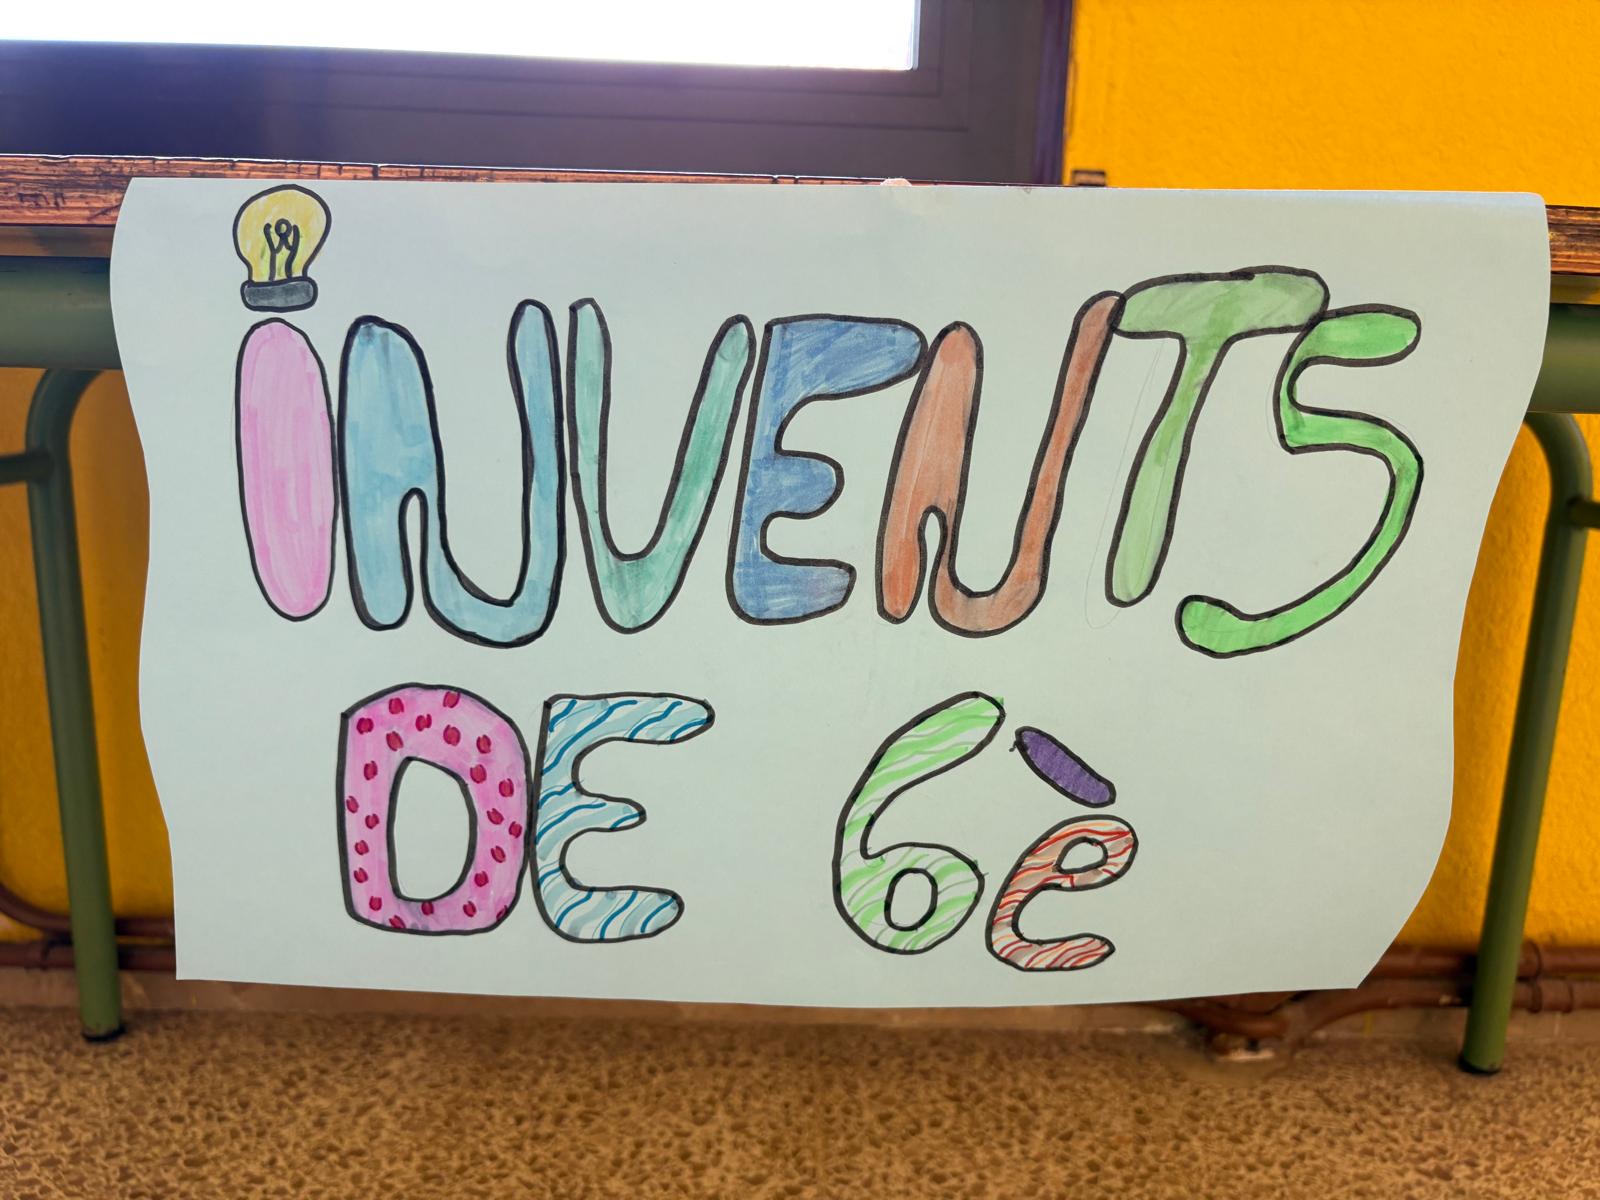 iNVENTS
DE 6è